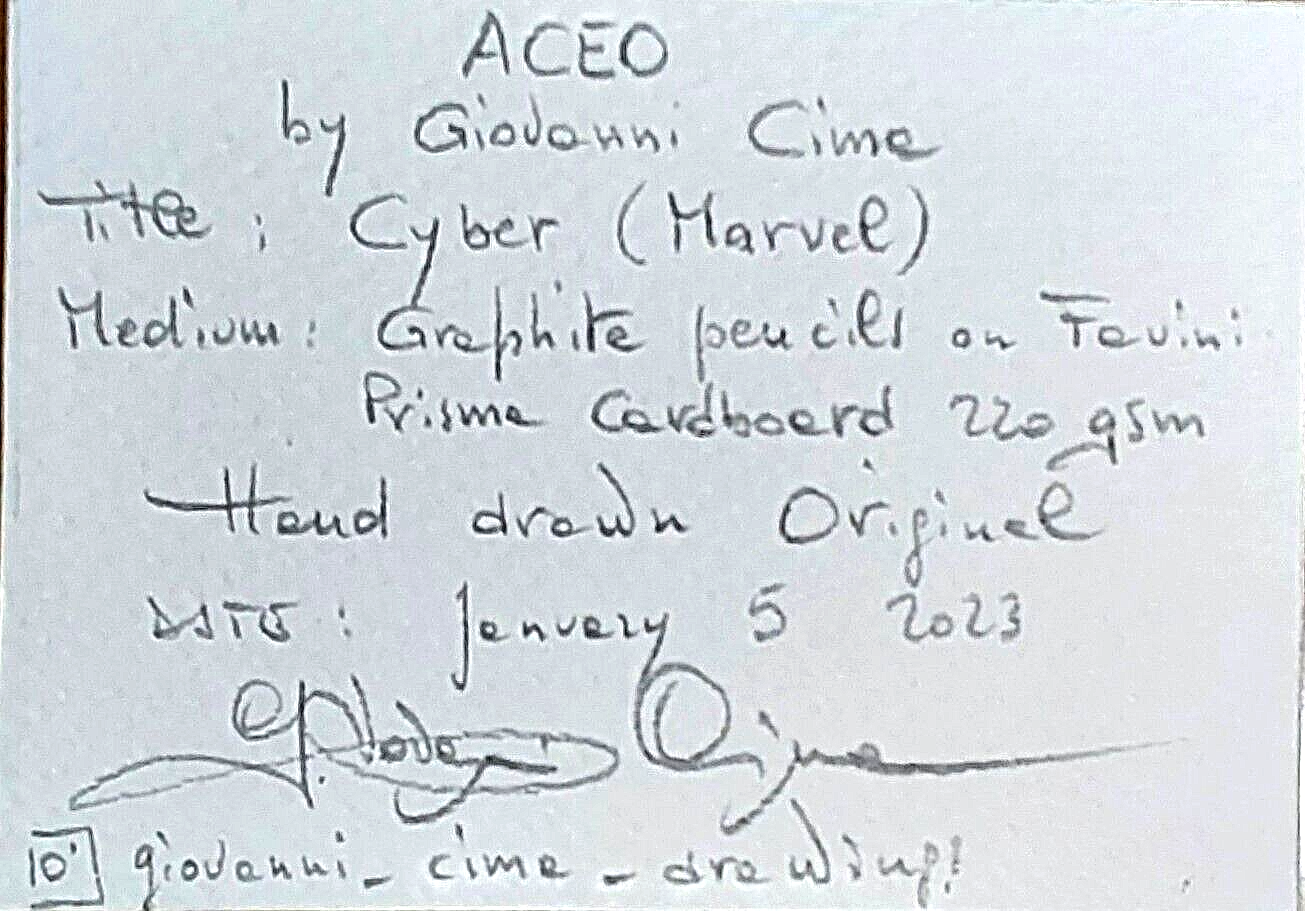 ACEO
by Giovanni Cima
Title: Cyber (Marvel)
Medium: Graphite pencils on Favini
Prisma Cardboard 220 gsm
Hand drawn Original
DATE: January 5 2023
Giovanni Cima
giovanni_cima_drawings